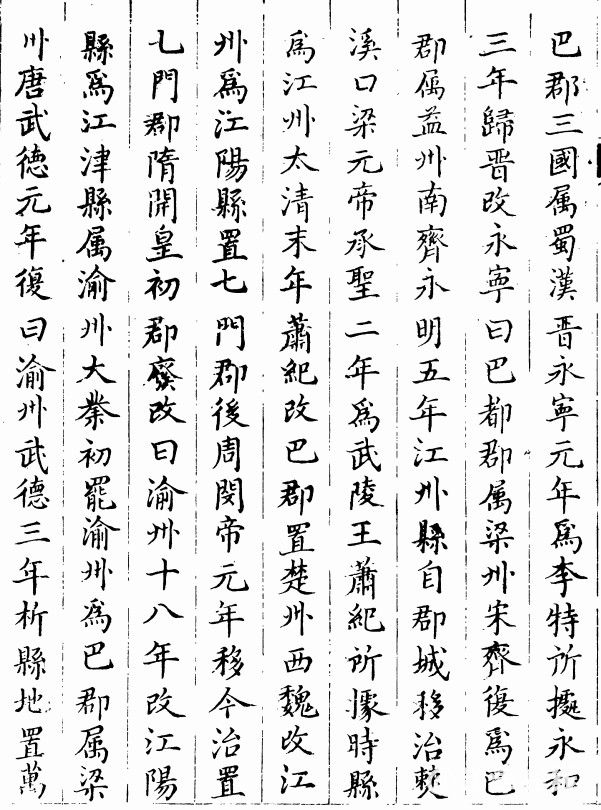 巴郡三國属蜀漢晋永寧元年爲李特所㩀永和
三年歸晋改永寧曰巴都郡属梁州宋齊復爲巴
郡属益州南齊永明五年江州縣自郡城移治僰
溪口梁元帝承聖二年爲武陵王蕭紀所據時縣
爲江州太清末年蕭紀改巴郡置楚州西魏改江
州爲江陽縣置七門郡後周閔帝元年移今治置
七門郡隋開皇初郡廢改曰渝州十八年改江陽
縣爲江津縣属渝州大業初罷渝州爲巴郡属梁
州唐武德元年復曰渝州武德三年析縣地置萬